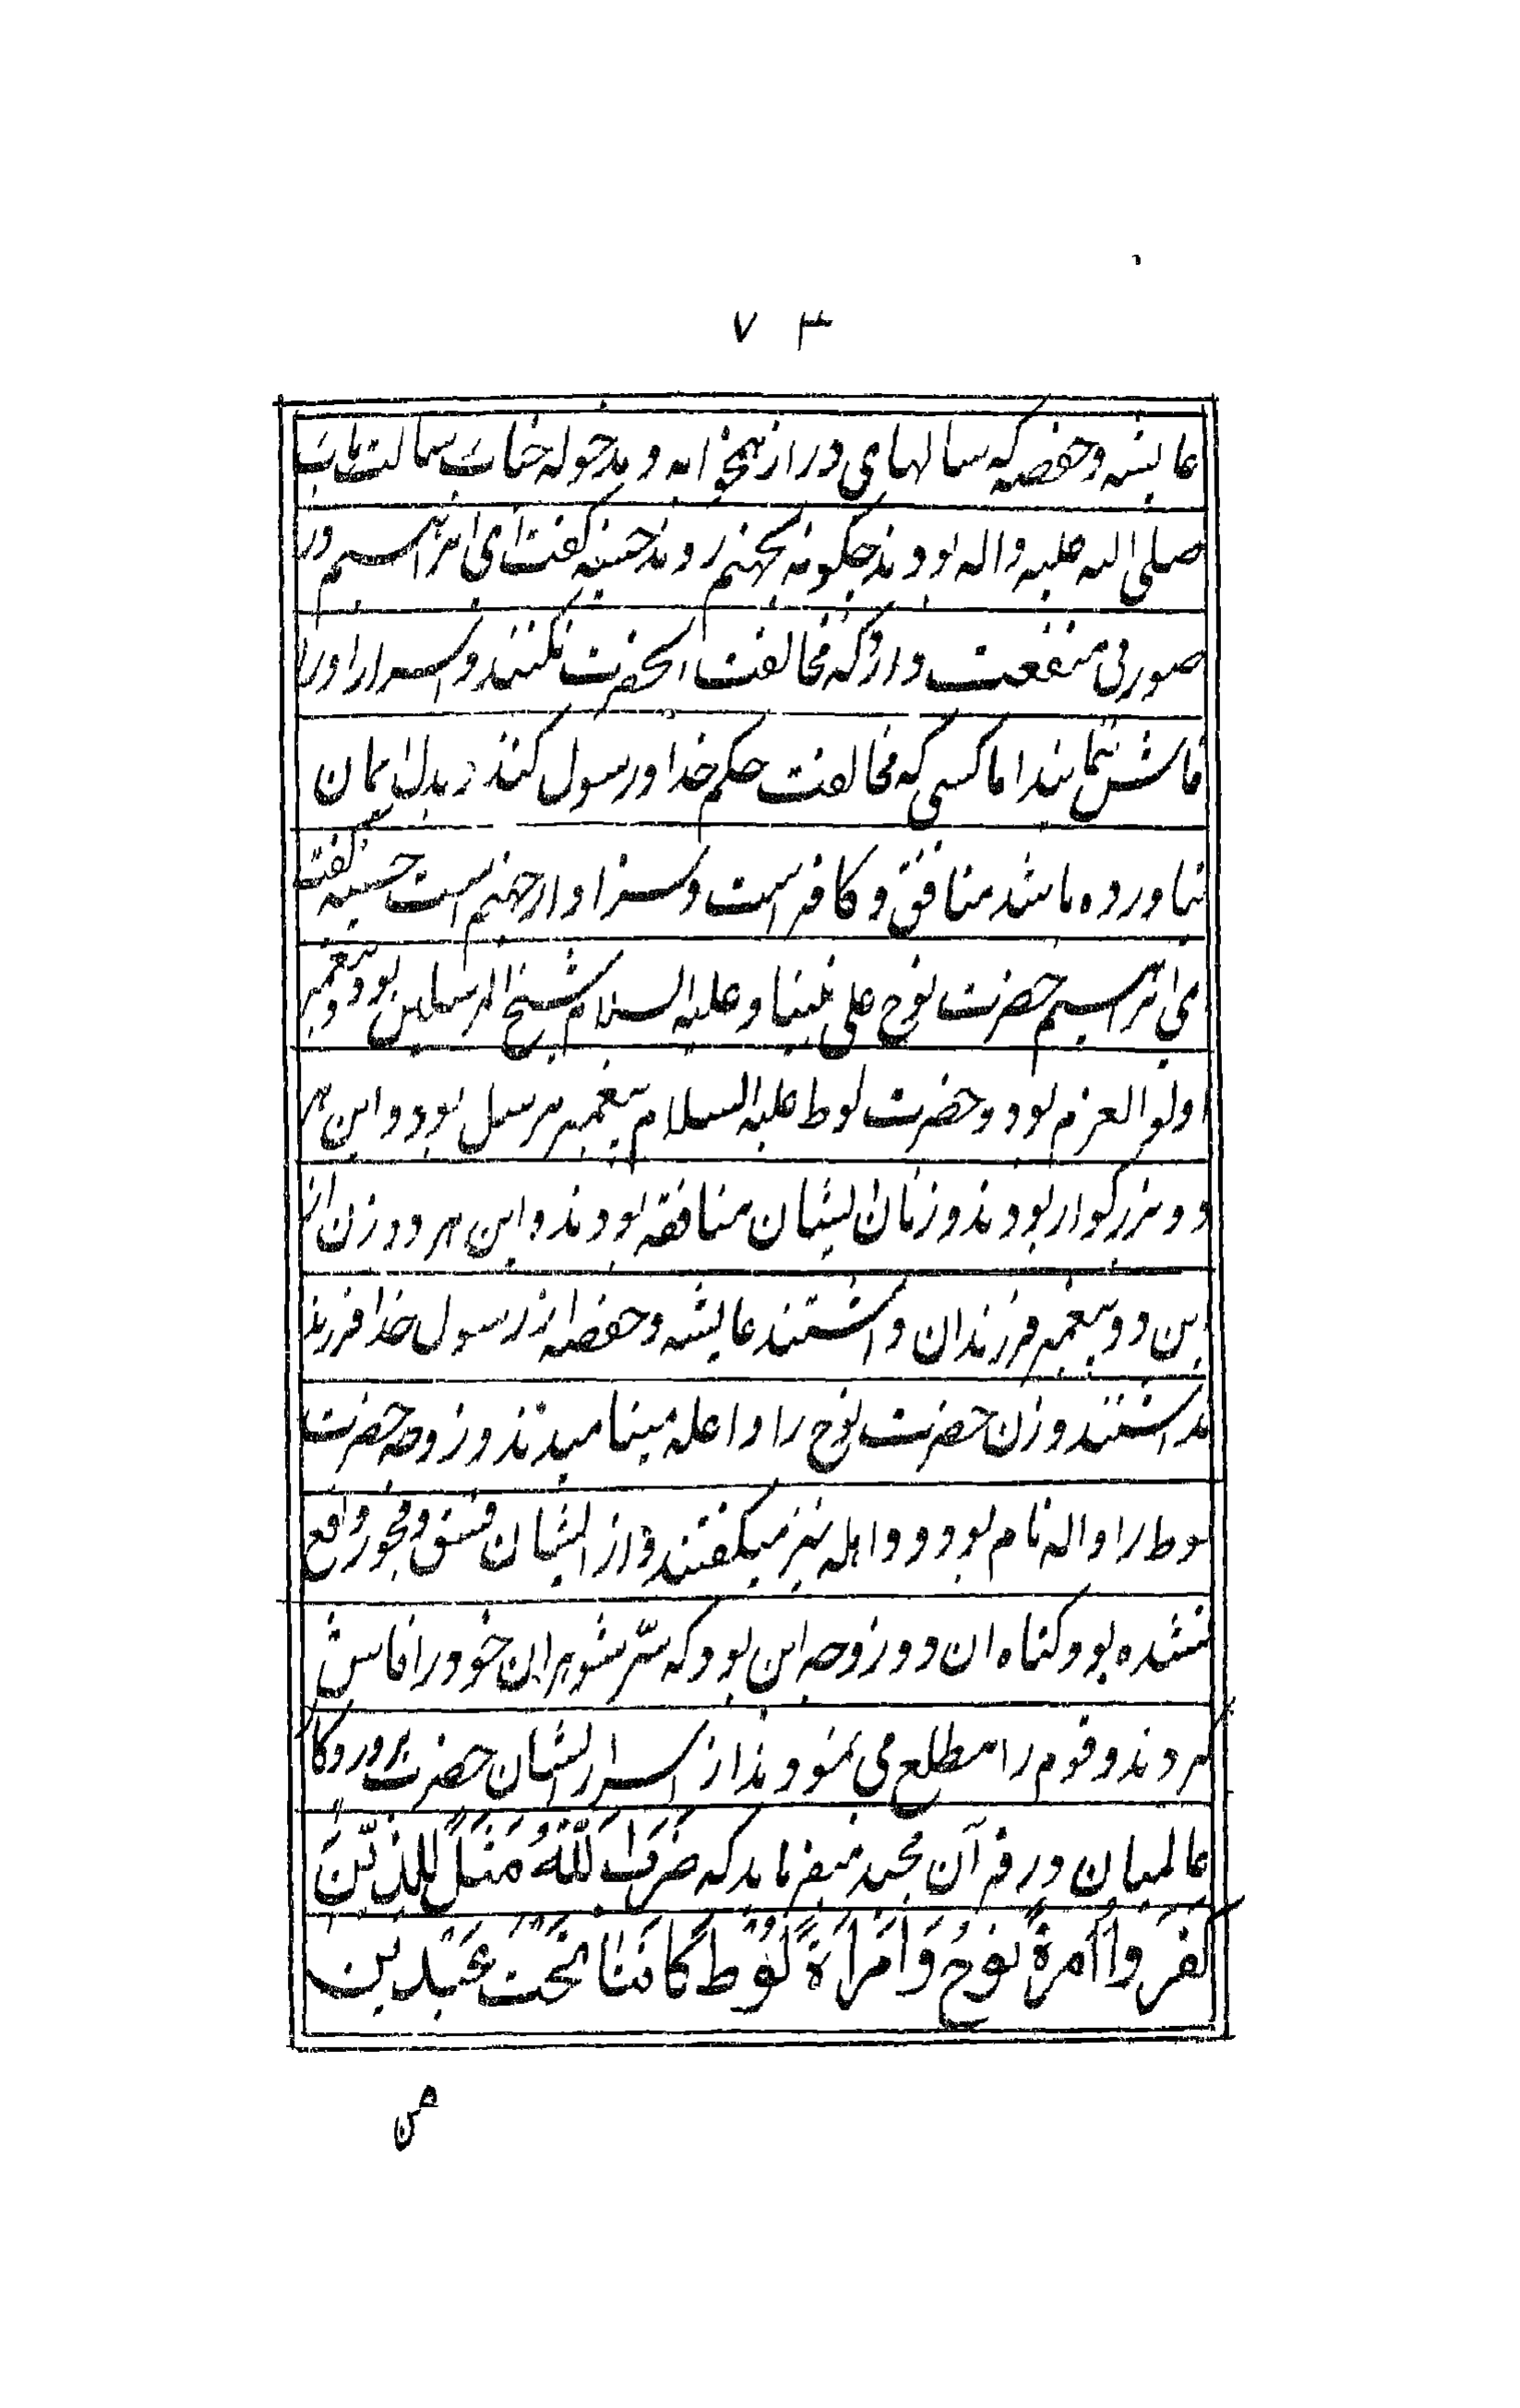 ۷۳
عایشه وحفصه که سالهای دراز همخوابه و مدخوله جناب رسالت ماب
صلی الله علیه واله بودند چکونه بجهنم روند حسنیه کفت ای ابراهیم در
صورتی منفعت دارد که مخالفت انحضرت نکنند و اسرار اورا
فاش ننمایند اما کسی که مخالفت حکم خدا ورسول کند و بدل ایمان
نیاورده باشد منافق و کافر است و سزاوار جهنم است حسنیه کفت
ای ابراهیم حضرت نوح علی نبینا وعلیه السلام شیخ المرسلین بود و پیغمبر
اولو العزم بود و حضرت لوط علیه السلام پیغمبر مرسل بود و این هر
دو بزرکوار بودند و زنان ایشان منافقه بودند و این هر دو زن از
این دو پیغمبر فرزندان داشتند عایشه و حفصه از رسول خدا فرزند
نداشتند و زن حضرت نوح را واعله مینامیدند و زوجه حضرت
لوط را واله نام بود و واهله نیز میکفتند و از ایشان فسق و فجور واقع
نشده بود کناه ان دو زوجه این بود که سرّ شوهران خود را فاش
کردند و قوم را مطلع می نمودند از اسرار ایشان حضرت پروردکار
عالمیان در قرآن مجید میفرماید که ضَرَبَ اللّٰهُ مَثَلً لِلَّذِیْنَ
کَفَرَوا اُمرةً نُوحُ وَاَمْرَاَةً لُوْطَ کَانَتَا تَحْتَ عَبْدَیْن
من